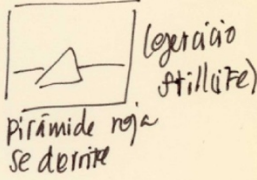 (ejercicio
still life)
pirámide roja
se derrite